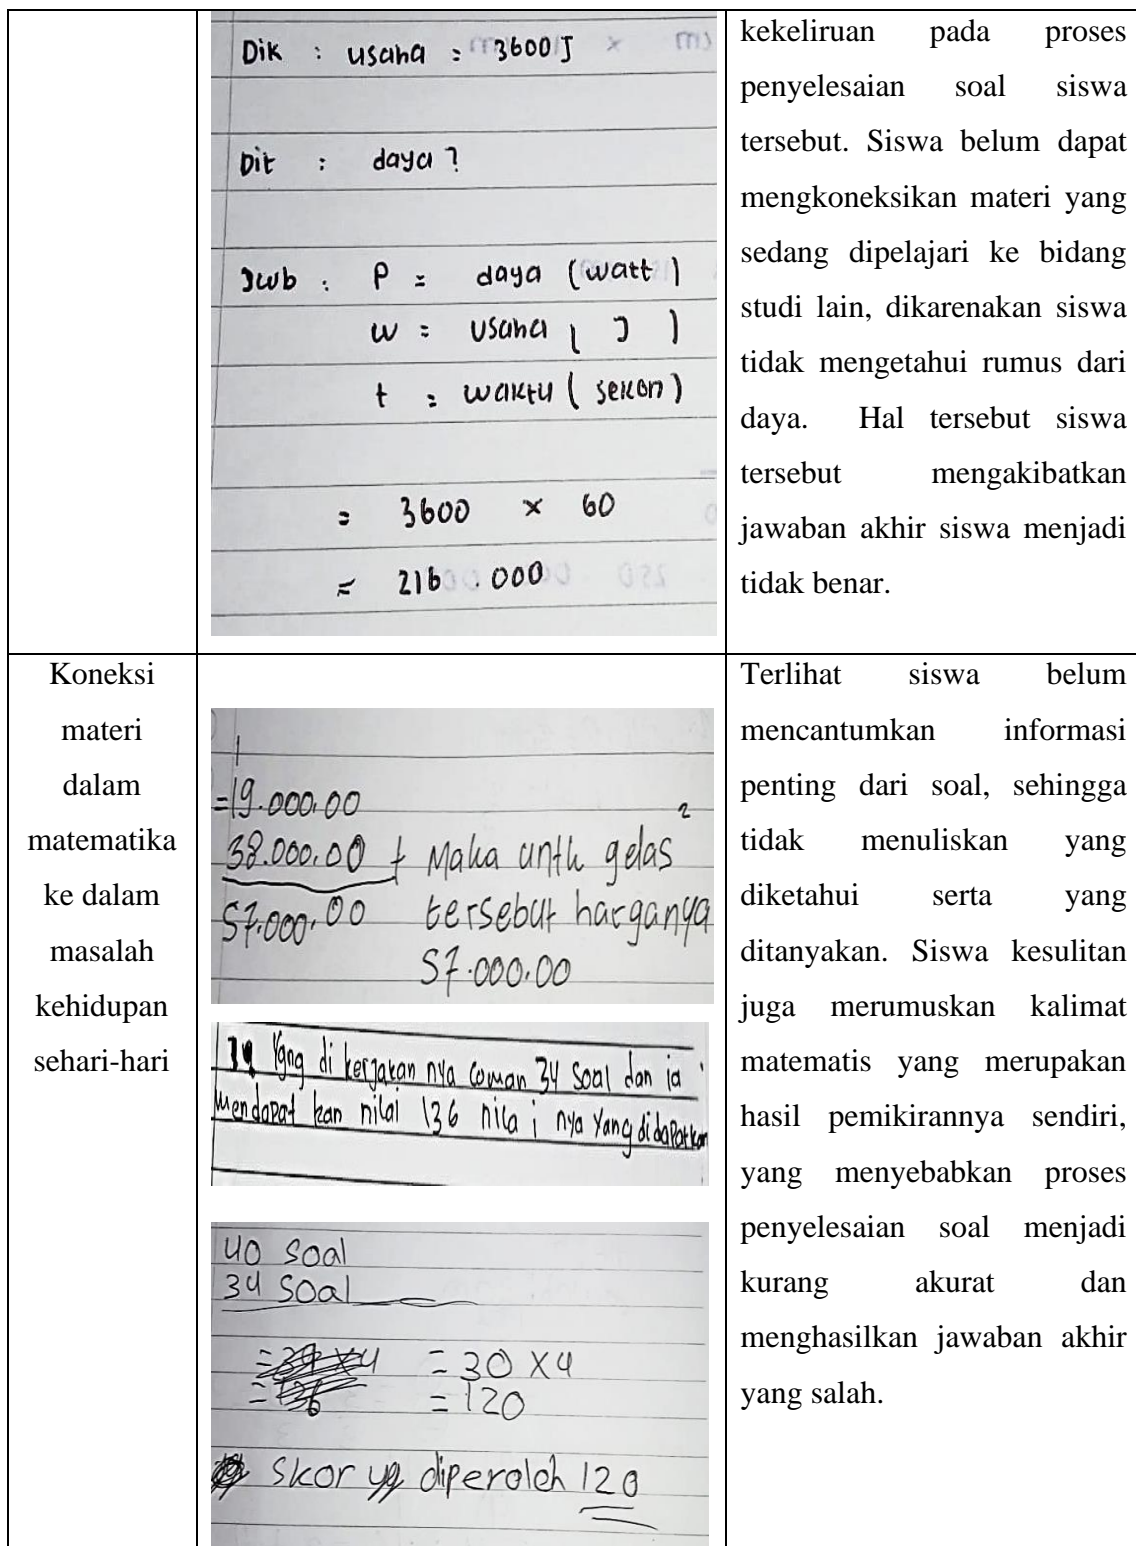 Dik : usaha = 3600 J
Dit : daya ?
Jwb : P = daya (watt)
w = usaha ( J )
t = waktu ( sekon)
= 3600 × 60
= 216.000
kekeliruan pada proses
penyelesaian soal siswa
tersebut. Siswa belum dapat
mengkoneksikan materi yang
sedang dipelajari ke bidang
studi lain, dikarenakan siswa
tidak mengetahui rumus dari
daya. Hal tersebut siswa
tersebut mengakibatkan
jawaban akhir siswa menjadi
tidak benar.
Koneksi
materi
dalam
matematika
ke dalam
masalah
kehidupan
sehari-hari
1
=19.000.00
38.000.00 + Maka untk gelas 2
57.000.00 tersebut harganya
57.000.00
Yang di kerjakan nya coman 34 soal dan ia
mendapat kan nilai 136 nila i nya Yang didapatkan
40 soal
34 soal
= 30 x 4
= 120
Skor yg diperoleh 120
Terlihat siswa belum
mencantumkan informasi
penting dari soal, sehingga
tidak menuliskan yang
diketahui serta yang
ditanyakan. Siswa kesulitan
juga merumuskan kalimat
matematis yang merupakan
hasil pemikirannya sendiri,
yang menyebabkan proses
penyelesaian soal menjadi
kurang akurat dan
menghasilkan jawaban akhir
yang salah.